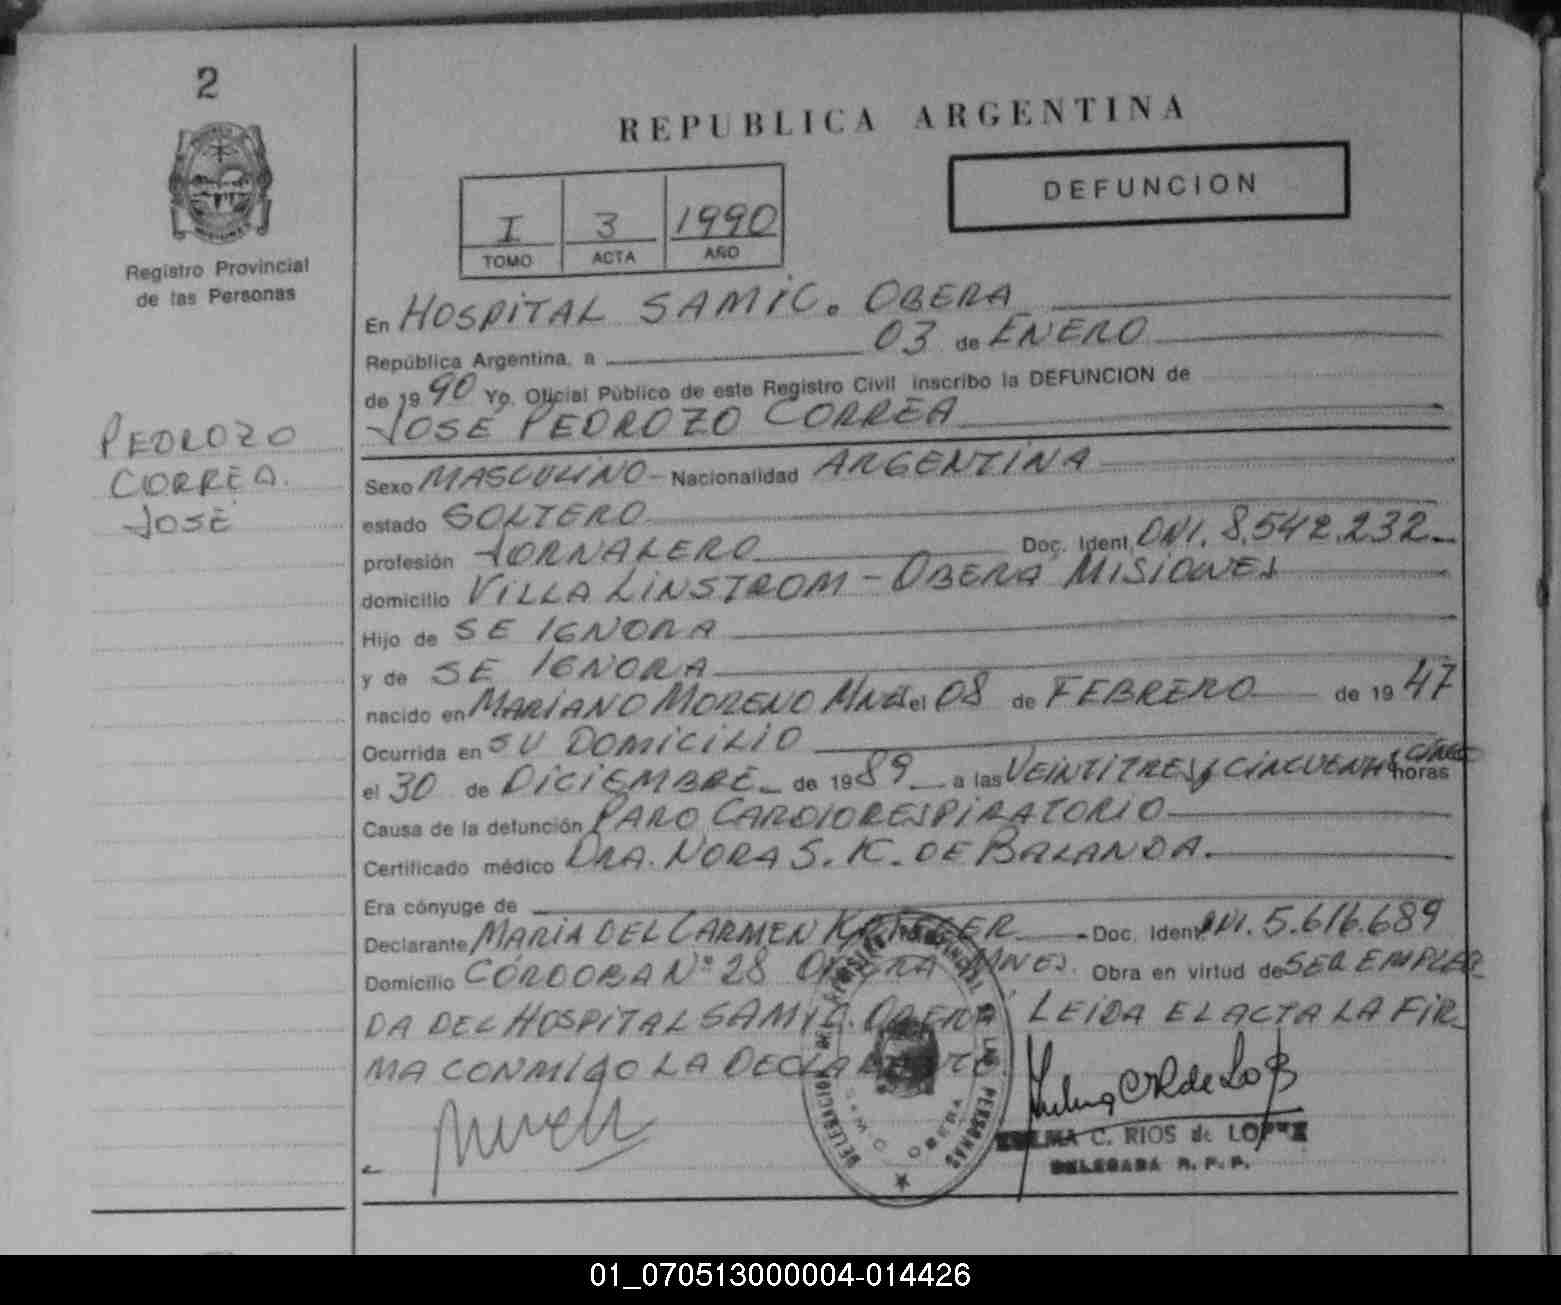 2
Registro Provincial
de las Personas
PEDROZO
CORREA.
JOSE
REPUBLICA ARGENTINA
DEFUNCION
I 3 1990
TOMO ACTA AÑO
En HOSPITAL SAMIC. OBERA
República Argentina, a 03 de ENERO
de 1990 Yo, Oficial Público de este Registro Civil inscribo la DEFUNCION de
JOSE PEDROZO CORREA
Sexo MASCULINO - Nacionalidad ARGENTINA
estado SOLTERO
profesión JORNALERO Doc. Ident. DNI. 8.542.232
domicilio VILLA LINSTROM - OBERA MISIONES
Hijo de SE IGNORA
y de SE IGNORA
nacido en MARIANO MORENO MNES el 08 de FEBRERO de 1947
Ocurrida en SU DOMICILIO
el 30 de DICIEMBRE de 1989 a las VEINTITRES y CINCUENTA CINCO horas
Causa de la defunción PARO CARDIORESPIRATORIO
Certificado médico DRA. NORA S. K. DE BALANDA.
Era cónyuge de
Declarante MARIA DEL CARMEN Doc. Ident. DNI. 5.616.689
Domicilio CORDOBA Nº 28 OBERA MNES. Obra en virtud de SER EMPLEA
DA DEL HOSPITAL SAMIC. OBERA LEIDA EL ACTA LA FIR
MA CONMIGO LA DECLARANTE
DE LAS PERSONAS
OBERA
C. RIOS de LOPEZ
DELEGADA R. P. P.
01_070513000004-014426